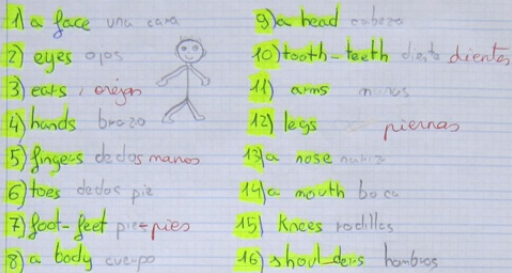 1) a face una cara
2) eyes ojos
3) ears, orejas
4) hands brazo
5) fingers dedos manos
6) toes dedos pie
7) foot-feet pie-pies
8) a body cuerpo
9) a head cabeza
10) tooth-teeth diente dientes
11) arms
12) legs piernas
13) a nose nariz
14) a mouth boca
15) knees rodillas
16) shoulders hombros